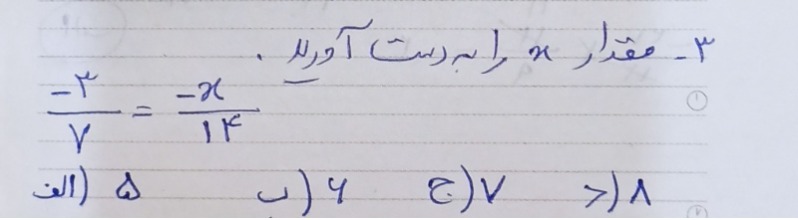 ۳- مقدار x را به دست آورید.
-۳/۷ = -x/۱۴
الف) ۵ ب) ۶ ج) ۷ د) ۸